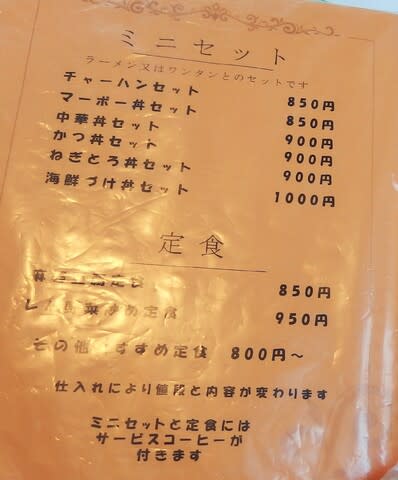 ミニセット
ラーメン又はワンタンとのセットです
チャーハンセット 850円
マーボー丼セット 850円
中華丼セット 900円
かつ丼セット 900円
ねぎとろ丼セット 900円
海鮮づけ丼セット 1000円
定食
定食 850円
定食 950円
その他 すすめ定食 800円〜
仕入れにより値段と内容が変わります
ミニセットと定食には
サービスコーヒーが
付きます